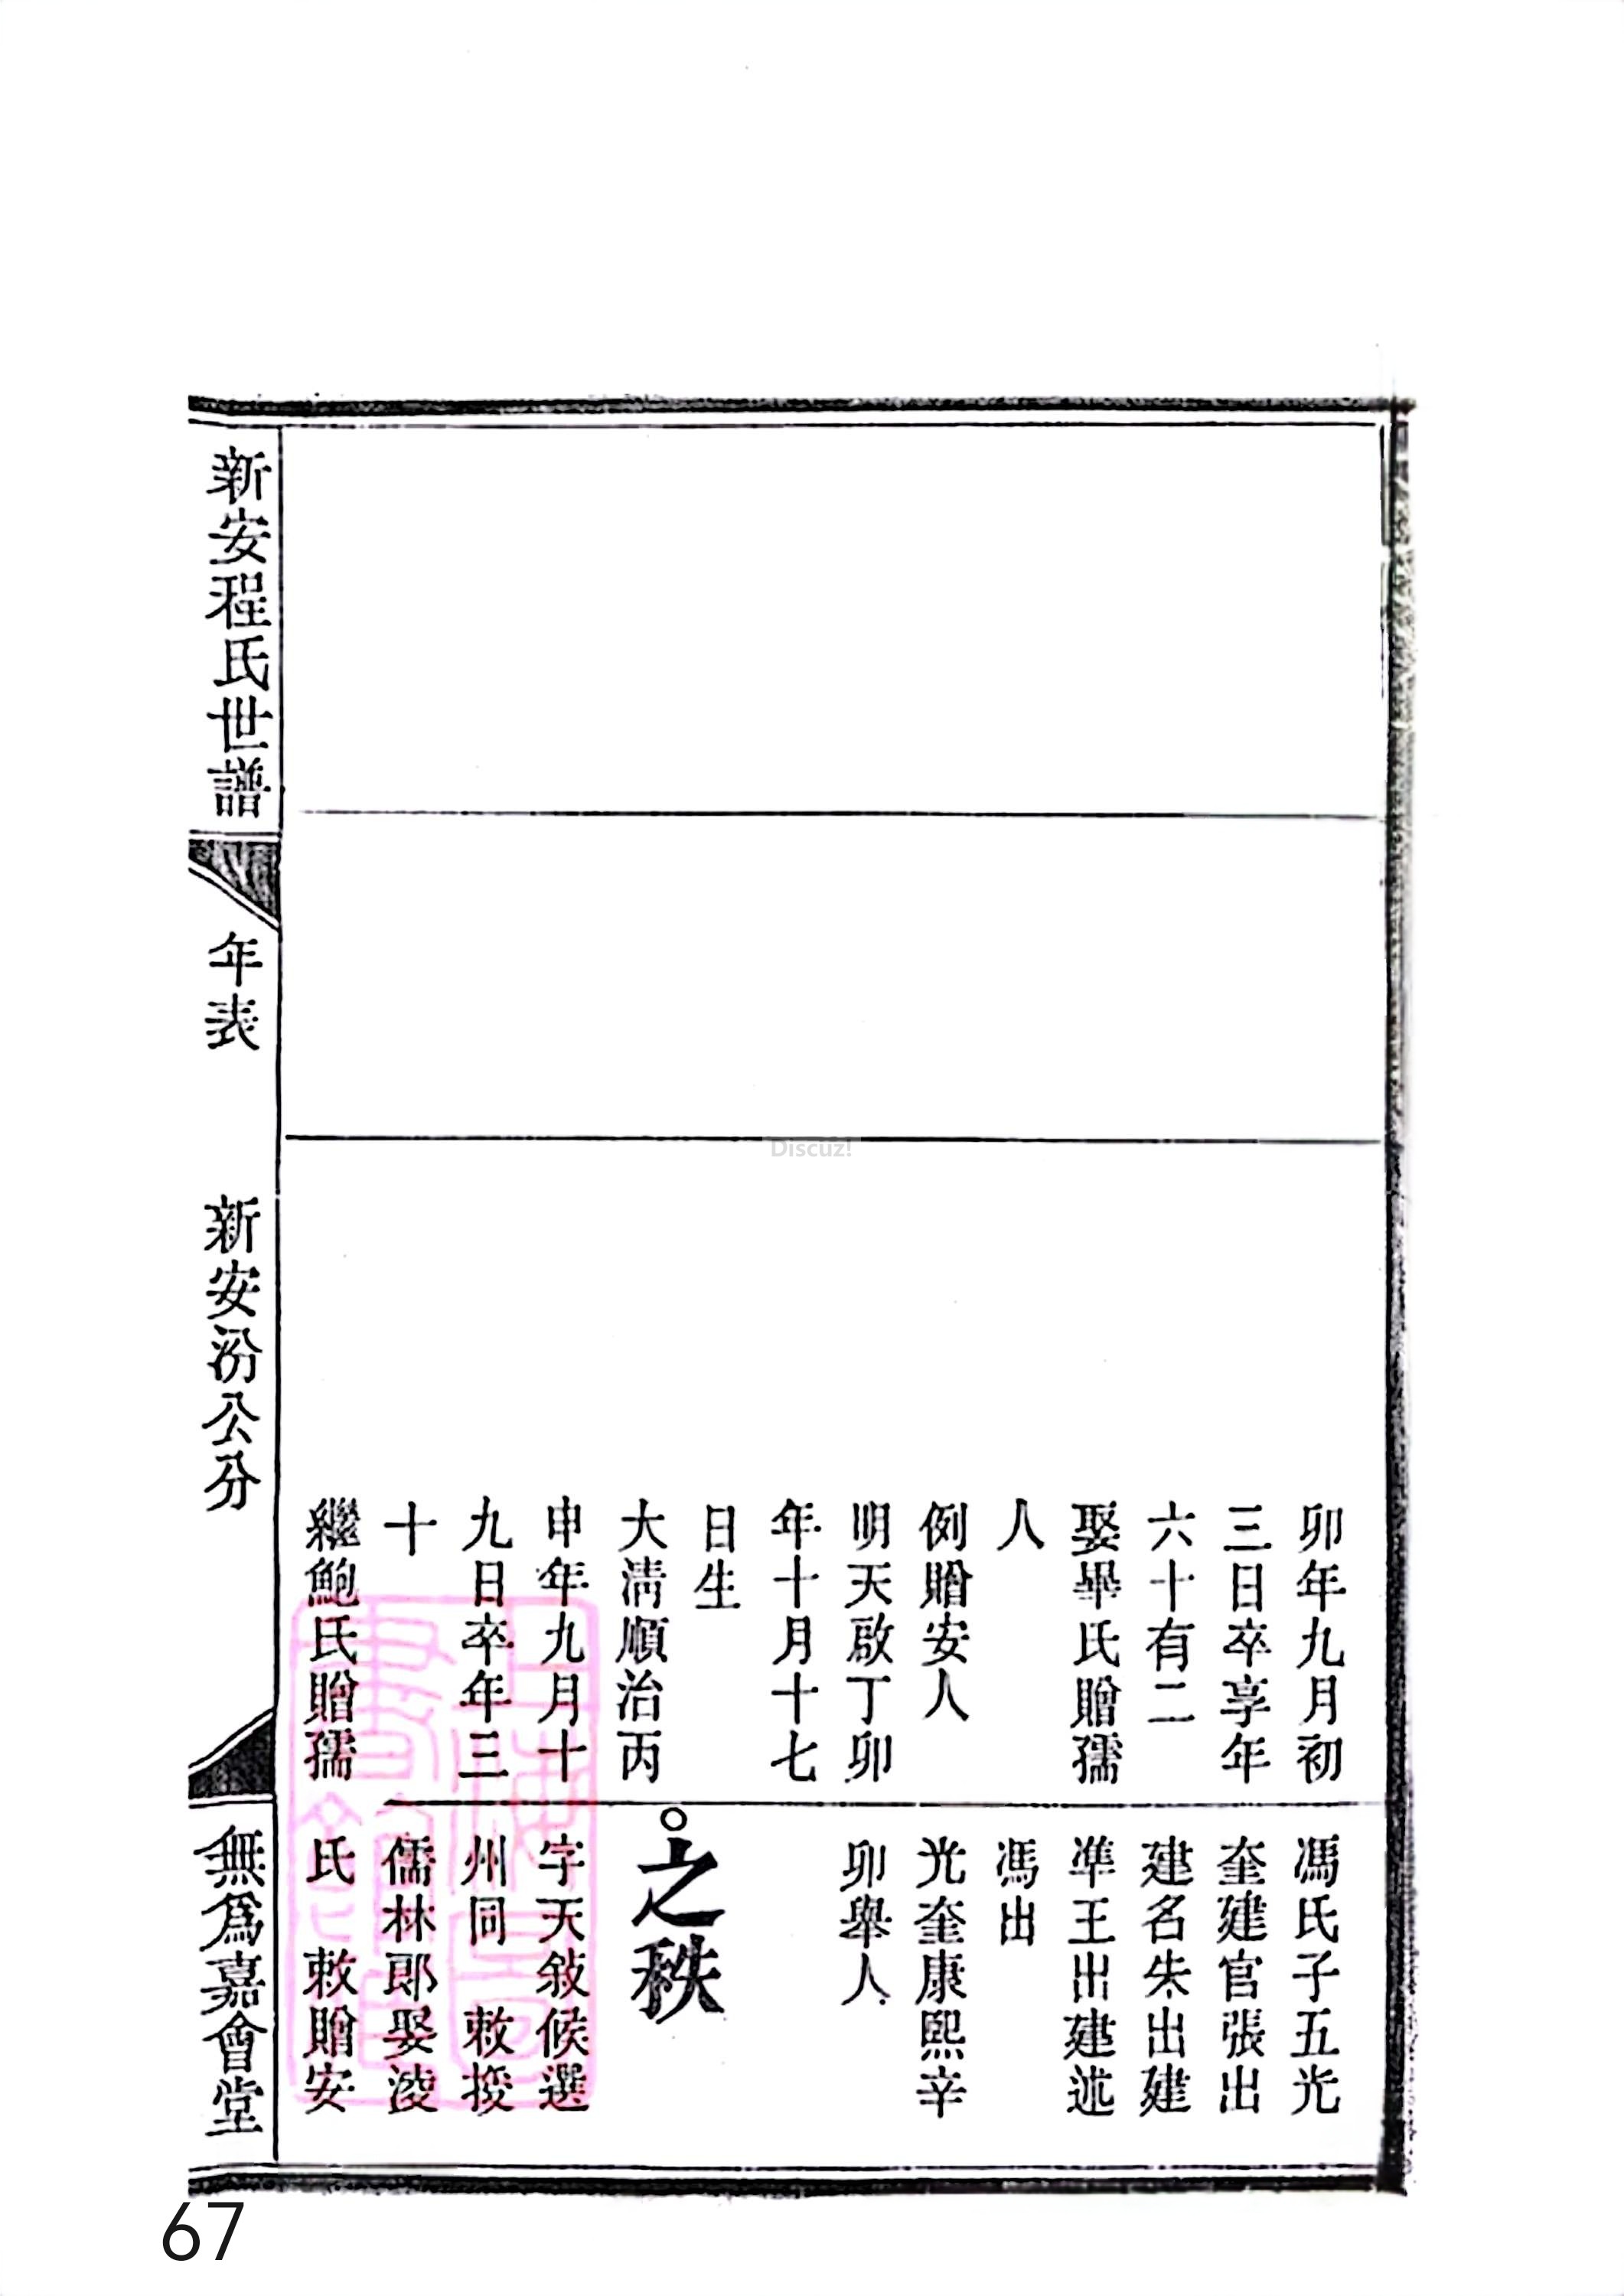 卯年九月初
三日卒享年
六十有二
娶畢氏贈孺
人
例贈安人
明天啟丁卯
年十月十七
日生
大清順治丙
申年九月十
九日卒年三
十
繼鮑氏贈孺
馮氏子五光
奎建官張出
建名朱出建
準王出建述
馮出
光奎康熙辛
卯舉人
之秩
字天敍候選
州同 敕授
儒林郎娶凌
氏 敕贈安
新安程氏世譜
年表
新安汾公分
無爲嘉會堂
Discuz!
67